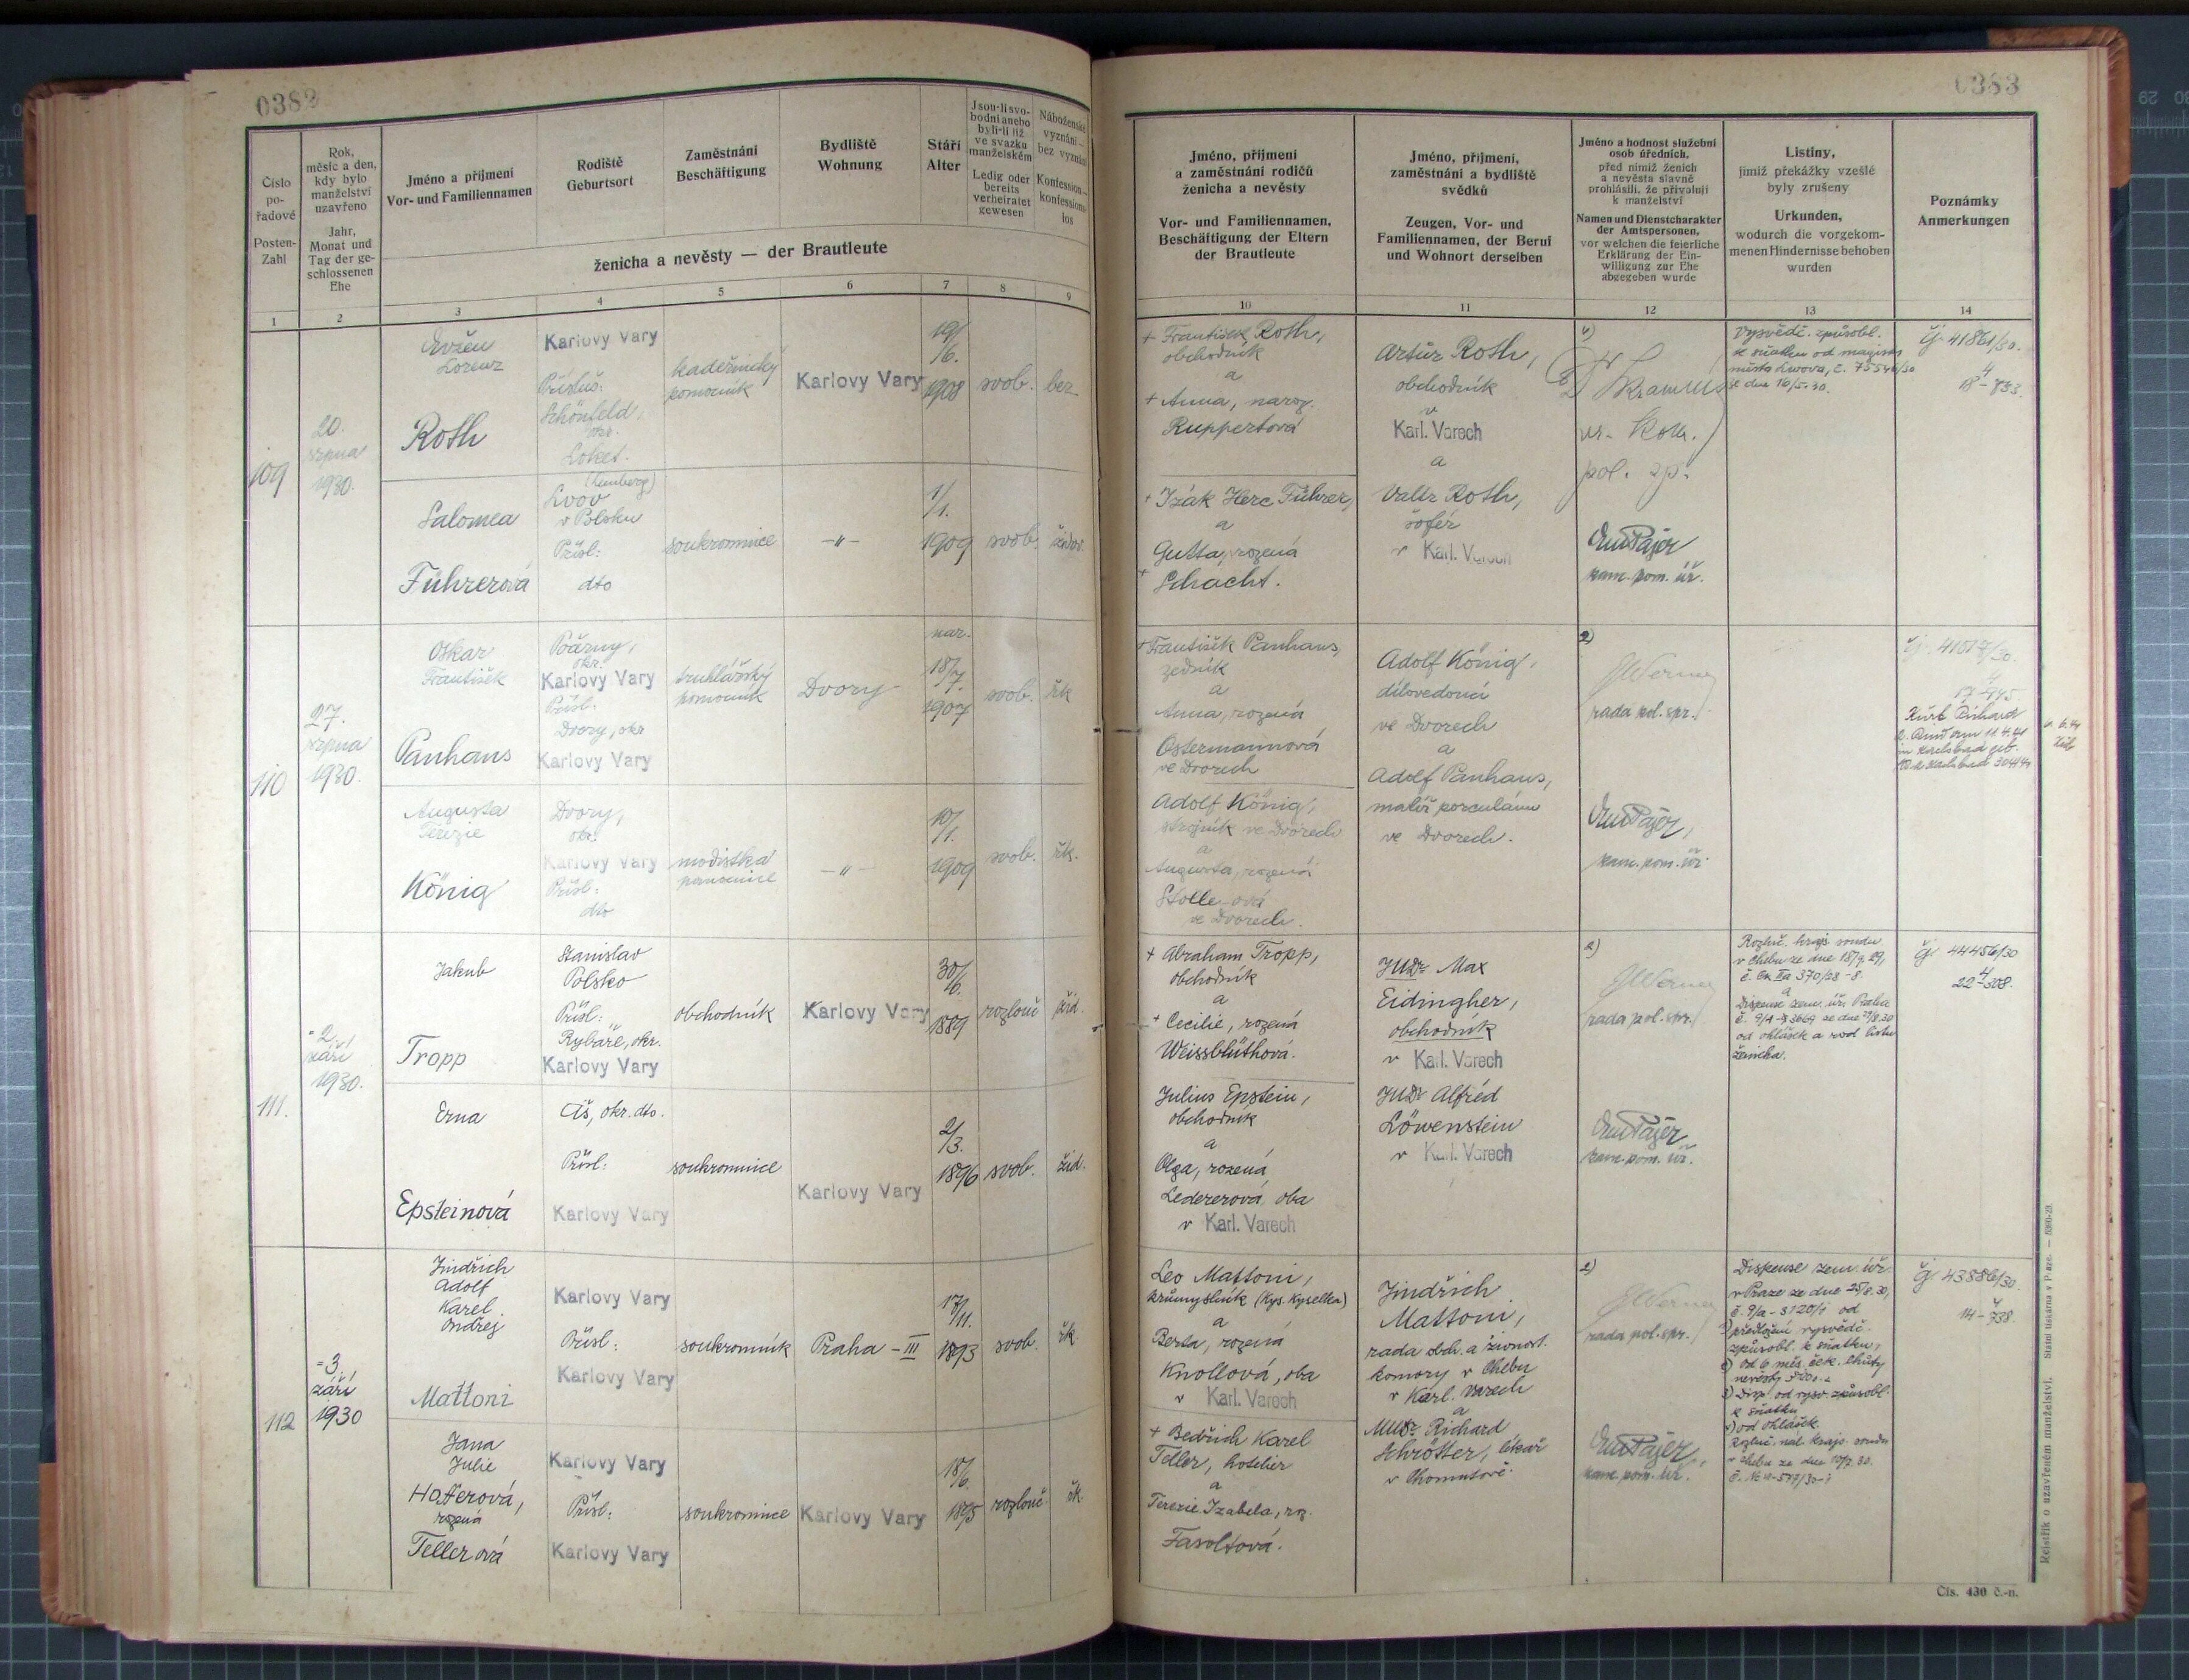 0382
Číslo
po-
řadové
Posten-
Zahl
Rok,
měsíc a den,
kdy bylo
manželství
uzavřeno
Jahr,
Monat und
Tag der ge-
schlossenen
Ehe
Jméno a příjmení
Vor- und Familiennamen
Rodiště
Geburtsort
Zaměstnání
Beschäftigung
Bydliště
Wohnung
Stáří
Alter
Jsou-li svo-
bodni anebo
byli-li již
ve svazku
manželském
Ledig oder
bereits
verheiratet
gewesen
Náboženské
vyznání —
bez vyznání
Konfession —
konfessions-
los
ženicha a nevěsty — der Brautleute
1
2
3
4
5
6
7
8
9
109
20.
srpna
1930.
Evžen
Lorenz
Roth
Karlovy Vary
Přísluš:
Schönfeld,
okr.
Loket.
kadeřnický
pomocník
Karlovy Vary
19/
/6.
1908
svob.
bez
Salomea
Führerová
(Lemberg)
Lvov
v Polsku
Přísl:
dto
soukromnice
-"-
1/
/1.
1909
svob.
židov.
110
27.
srpna
1930.
Oskar
František
Panhans
Počerny,
okr.
Karlovy Vary
Přísl:
Dvory, okr
Karlovy Vary
truhlářský
pomocník
Dvory
nar.
18/
/7.
1907
svob.
řk
Augusta
Terezie
König
Dvory,
okr.
Karlovy Vary
Přísl:
dto
modistka
-"-
10/
/1.
1909
svob.
řk.
111.
-2.
září
1930.
Jakub
Tropp
Stanislav
Polsko
Přísl:
Rybáře, okr.
Karlovy Vary
obchodník
Karlovy Vary
30/
/6.
1889
rozlouč
žid.
Erna
Epsteinová
Aš, okr. dto.
Přísl:
Karlovy Vary
soukromnice
Karlovy Vary
2/
/3.
1896
svob.
žid.
112
-3.
září
1930
Jindřich
Adolf
Karel
Ondřej
Mattoni
Karlovy Vary
Přísl:
Karlovy Vary
soukromník
Praha - III
17/
/11.
1893
svob.
řk.
Jana
Julie
Hatterová,
rozená
Tellerová
Karlovy Vary
Přísl:
Karlovy Vary
soukromnice
Karlovy Vary
18/
/6.
1895
rozlouč
řk.
0383
Jméno, příjmení
a zaměstnání rodičů
ženicha a nevěsty
Vor- und Familiennamen,
Beschäftigung der Eltern
der Brautleute
Jméno, příjmení,
zaměstnání a bydliště
svědků
Zeugen, Vor- und
Familiennamen, der Beruf
und Wohnort derselben
Jméno a hodnost služební
osob úředních,
před nimiž ženich
a nevěsta slavně
prohlásili, že přivolují
k manželství
Namen und Dienstcharakter
der Amtspersonen,
vor welchen die feierliche
Erklärung der Ein-
willigung zur Ehe
abgegeben wurde
Listiny,
jimiž překážky vzešlé
byly zrušeny
Urkunden,
wodurch die vorgekom-
menen Hindernisse behoben
wurden
Poznámky
Anmerkungen
10
11
12
13
14
+ František Roth,
obchodník
a
+ Anna, naroz.
Ruppertová
Artur Roth,
obchodník
v
Karl. Varech
a
Valtr Roth,
šofér
v Karl. Varech
vr. kom.
pol. sp.
kanc. pom. úř.
Vysvědč. způsobl.
ze dne 16/5. 30.
Čj. 41861/30.
4
18-833.
+ Izák Herc Führer,
a
Gutta, rozená
+ Schacht.
+ František Panhans,
zedník
a
Anna, rozená
Ostermannová
ve Dvorech
Adolf König,
dílovedoucí
ve Dvorech
a
Adolf Panhans,
malíř porculánu
ve Dvorech.
2)
rada pol. spr.
kanc. pom. úř.
Adolf König,
strojník ve Dvorech
a
Augusta, rozená
Stolle-ová
ve Dvorech.
+ Abraham Tropp,
obchodník
a
+ Cecilie, rozená
Weissblüthová.
JUDr Max
Eidingher,
obchodník
v Karl. Varech
JUDr Alfréd
Löwenstein
v Karl. Varech
2)
rada pol. spr.
kanc. pom. úř.
Rozluč. krajs. soudu
v Chebu ze dne 18/9. 29,
č. Ck IIa 370/28-8.
a
Dispense zem. úř. Praha
od ohlášek a rod listu
ženicha.
Čj 44456/30
4
22-508.
Julius Epstein,
obchodník
a
Olga, rozená
Ledererová, oba
v Karl. Varech
Leo Mattoni,
průmyslník (Kys. Kyselka)
a
Berta, rozená
Knollová, oba
v Karl. Varech
Jindřich
Mattoni,
rada obch. a živnost.
komory v Chebu
v Karl. Varech
a
MUDr Richard
Schrötter, lékař
v Chomutově.
rada pol. spr.
kanc. pom. úř.
Dispense zem. úř.
v Praze ze dne 25/8. 30,
č. 9/a-3120/1 od
předložení vysvědč.
způsobl. k sňatku,
od 6 měs. ček. lhůty
nevěsty
k sňatku
od ohlášek.
Rozluč. nál. krajs. soudu
v Chebu ze dne
Čj 43886/30
4
14-738.
+ Bedřich Karel
Teller, hoteliér
a
Terezie Izabela, roz.
Fasoltová.
Rejstřík o uzavřeném manželství. Státní tiskárna v Praze. — 5360-29.
Čís. 430 č.-n.